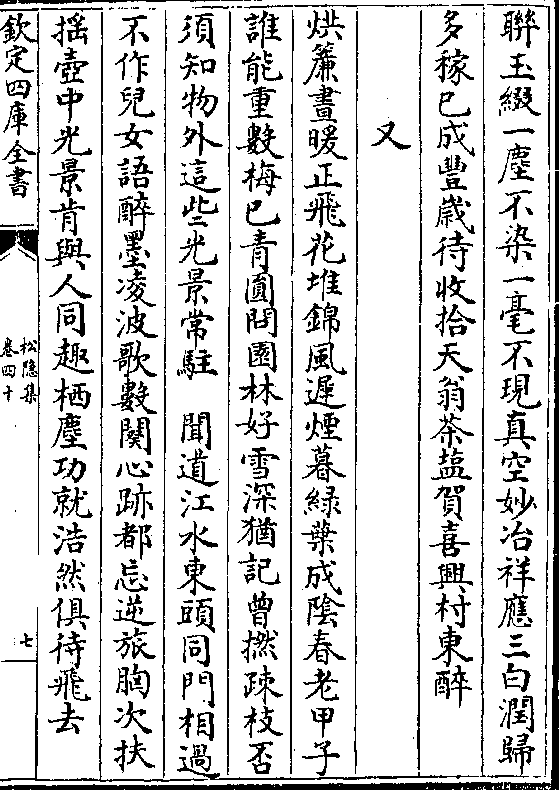 聯玉綴一塵不染一毫不現真空妙冶祥應三白潤歸
多稼已成豐歲待收拾天翁茶鹽賀喜興村東醉
又
烘簾晝暖正飛花堆錦風遲煙暮緑葉成陰春老甲子
誰能重數梅已青圓問園林好雪深猶記曾撚疎枝否
須知物外這些光景常駐　聞道江水東頭同門相過
不作兒女語醉墨凌波歌數闋心跡都忘逆旅胸次扶
揺壺中光景肯與人同趣栖塵功就浩然俱待飛去
欽定四庫全書
松隱集
卷四十
七